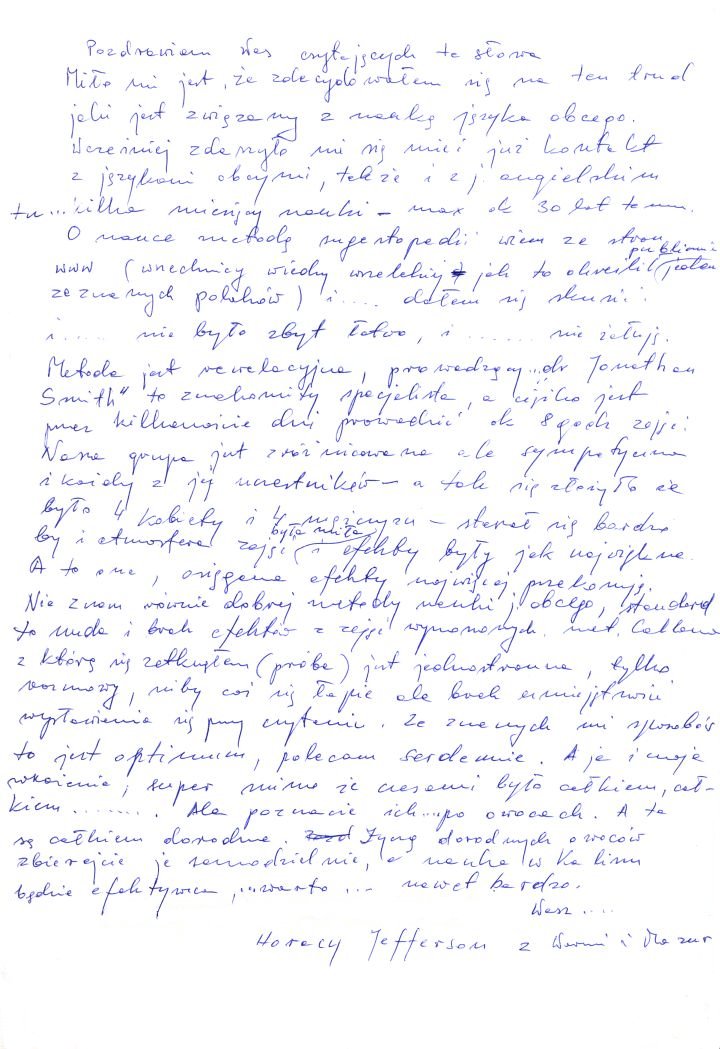 Pozdrawiam Was czytających te słowa
Miło mi jest, że zdecydowałem się na ten trud
jaki jest związany z nauką języka obcego.
Wcześniej zdarzyło mi się mieć już kontakt
z językami obcymi, także i z j. angielskim
tu... kilka miesięcy nauki – max ok 30 lat temu.
O nauce metodą sugestopedii wiem ze stron
www (wszechnicy wiedzy wszelkiej jak to określił publicznie jeden
ze znanych polaków) i .... dałem się skusić.
i ..... nie było zbyt łatwo, i ....... nie żałuję.
Metoda jest rewelacyjna, prowadzący „dr Jonathan
Smith" to znakomity specjalista, a ciężko jest
przez kilkanaście dni prowadzić ok 8 godz zajęć.
Nasza grupa jest zróżnicowana ale sympatyczna
i każdy z jej uczestników – a tak się złożyło że
było 4 kobiety i 4 mężczyzn – starał się bardzo
by i atmosfera zajęć była miła i efekty były jak największe.
A to one, osiągane efekty najwięcej przekonują.
Nie znam równie dobrej metody nauki j. obcego, standard
to nuda i brak efektów z zajęć wynoszonych. met. Callana
z którą się zetknąłem (próba) jest jednostronna, tylko
rozmowy, niby coś się łapie ale brak umiejętności
wysławiania się przy czytaniu. Ze znanych mi sposobów
to jest optimum, polecam serdecznie. A ja i moje
wrażenia; super mimo że czasami było całkiem, cał-
kiem ........ Ale poznacie ich ...po owocach. A te
są całkiem dorodne. Życzę dorodnych owoców
zbierajcie je samodzielnie, a nauka w Kaliniu
będzie efektywna, ...warto ... nawet bardzo.
Wasz ....
Horacy Jefferson z Warmii i Mazur